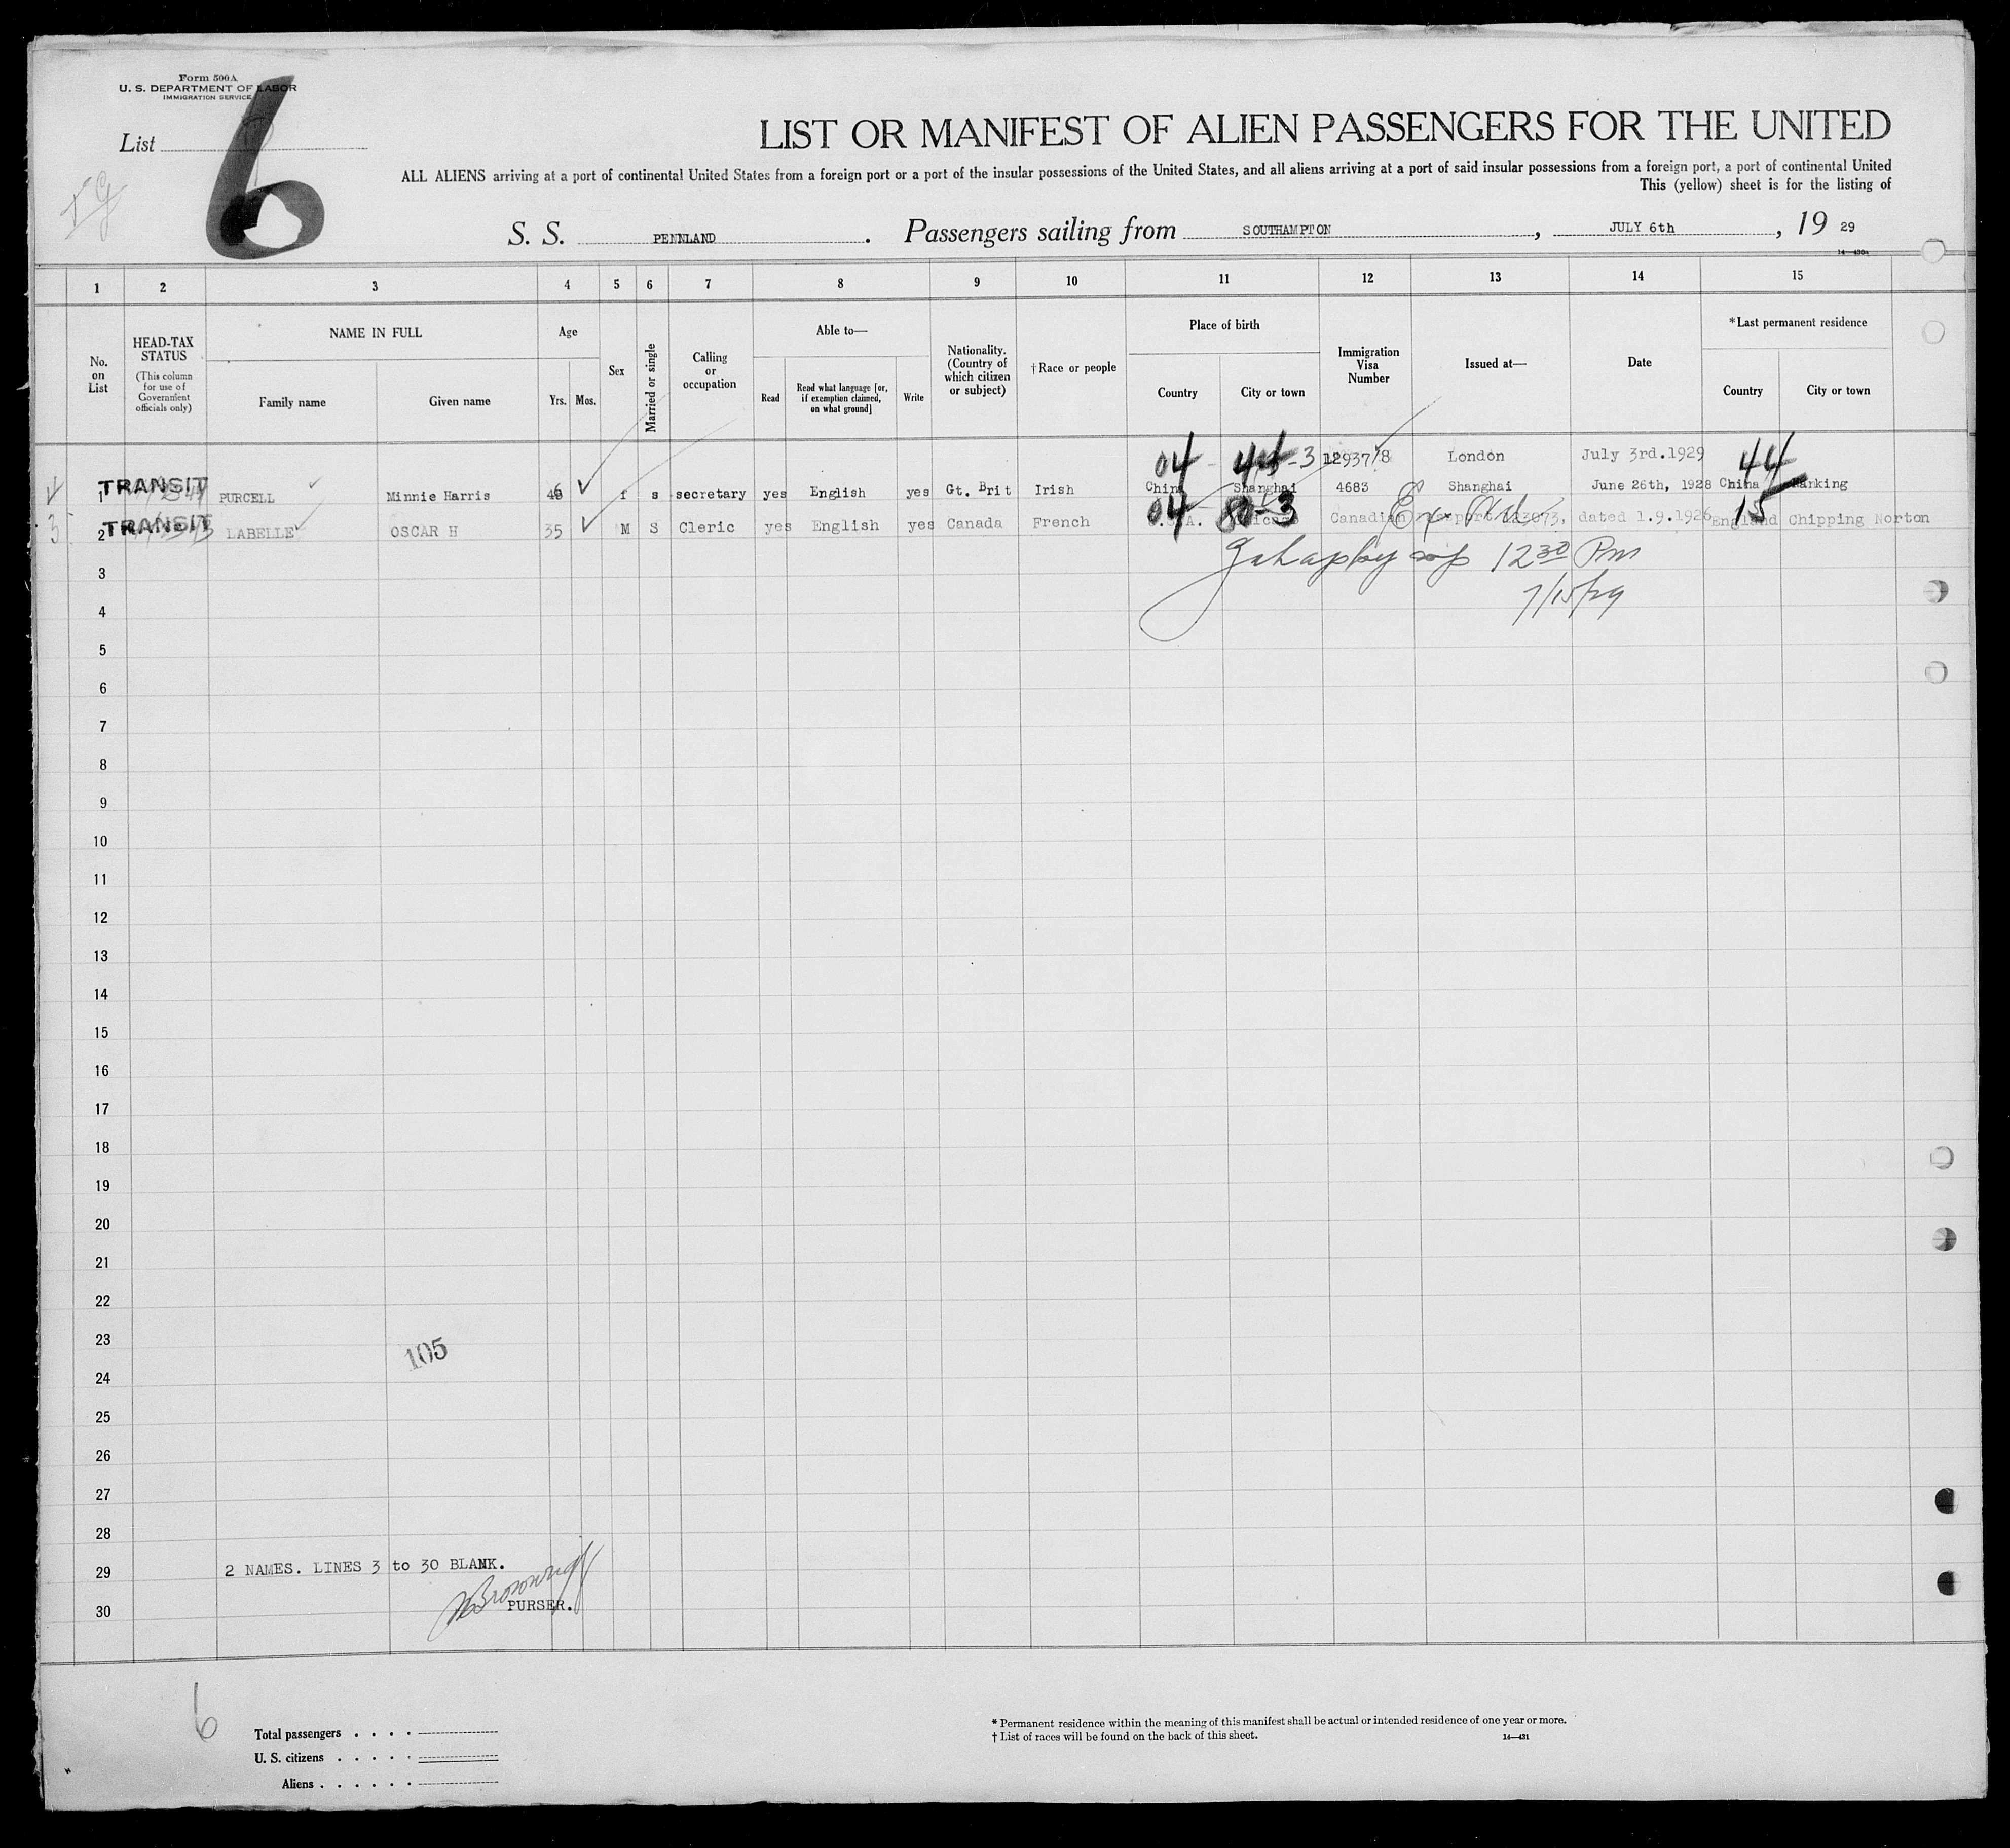 Form 500A
U. S. DEPARTMENT OF LABOR
IMMIGRATION SERVICE
List
6
LIST OR MANIFEST OF ALIEN PASSENGERS FOR THE UNITED
ALL ALIENS arriving at a port of continental United States from a foreign port or a port of the insular possessions of the United States, and all aliens arriving at a port of said insular possessions from a foreign port, a port of continental United
This (yellow) sheet is for the listing of
S. S. PENNLAND. Passengers sailing from SOUTHAMPTON, JULY 6th, 19 29
1 2 3 4 5 6 7 8 9 10 11 12 13 14 15
No. on List
HEAD-TAX STATUS
(This column for use of Government officials only)
NAME IN FULL
Family name Given name
Age
Yrs. Mos.
Sex
Married or single
Calling or occupation
Able to—
Read
Read what language [or, if exemption claimed, on what ground]
Write
Nationality. (Country of which citizen or subject)
†Race or people
Place of birth
Country City or town
Immigration Visa Number
Issued at—
Date
*Last permanent residence
Country City or town
04 - 3 12937/8 London July 3rd.1929 44
1 TRANSIT PURCELL Minnie Harris f s secretary yes English yes Gt. Brit Irish China Shanghai 4683 Shanghai June 26th, 1928 China
04 80-3 15
2 TRANSIT LABELLE OSCAR H 35 M S Cleric yes English yes Canada French Canadian dated 1.9.1926 England Chipping Norton
12 30 Pm
7/15/29
3
4
5
6
7
8
9
10
11
12
13
14
15
16
17
18
19
20
21
22
23
105
24
25
26
27
28
29 2 NAMES. LINES 3 to 30 BLANK.
30 PURSER.
6
Total passengers . . . .
U. S. citizens . . . . .
Aliens . . . . . .
* Permanent residence within the meaning of this manifest shall be actual or intended residence of one year or more.
† List of races will be found on the back of this sheet.
14—431